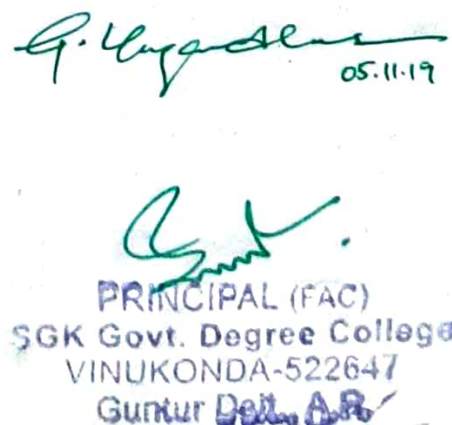 G. Yugandhar
05.11.19
PRINCIPAL (FAC)
SGK Govt. Degree College
VINUKONDA-522647
Guntur Dstt., A.P.